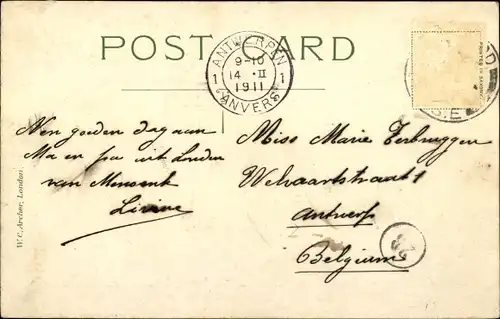 POST CARD
ANTWERPEN
9-10
1 14 · II 1
1911
ANVERS
PRINTED IN SAXONY
S.E.
Een goeden dag aan
Ma en pa uit Londen
van Menonk
Livine
Miss Marie Terbruggen
Welvaartstraat 1
Antwerp
Belgium
W. C. Archer, London.